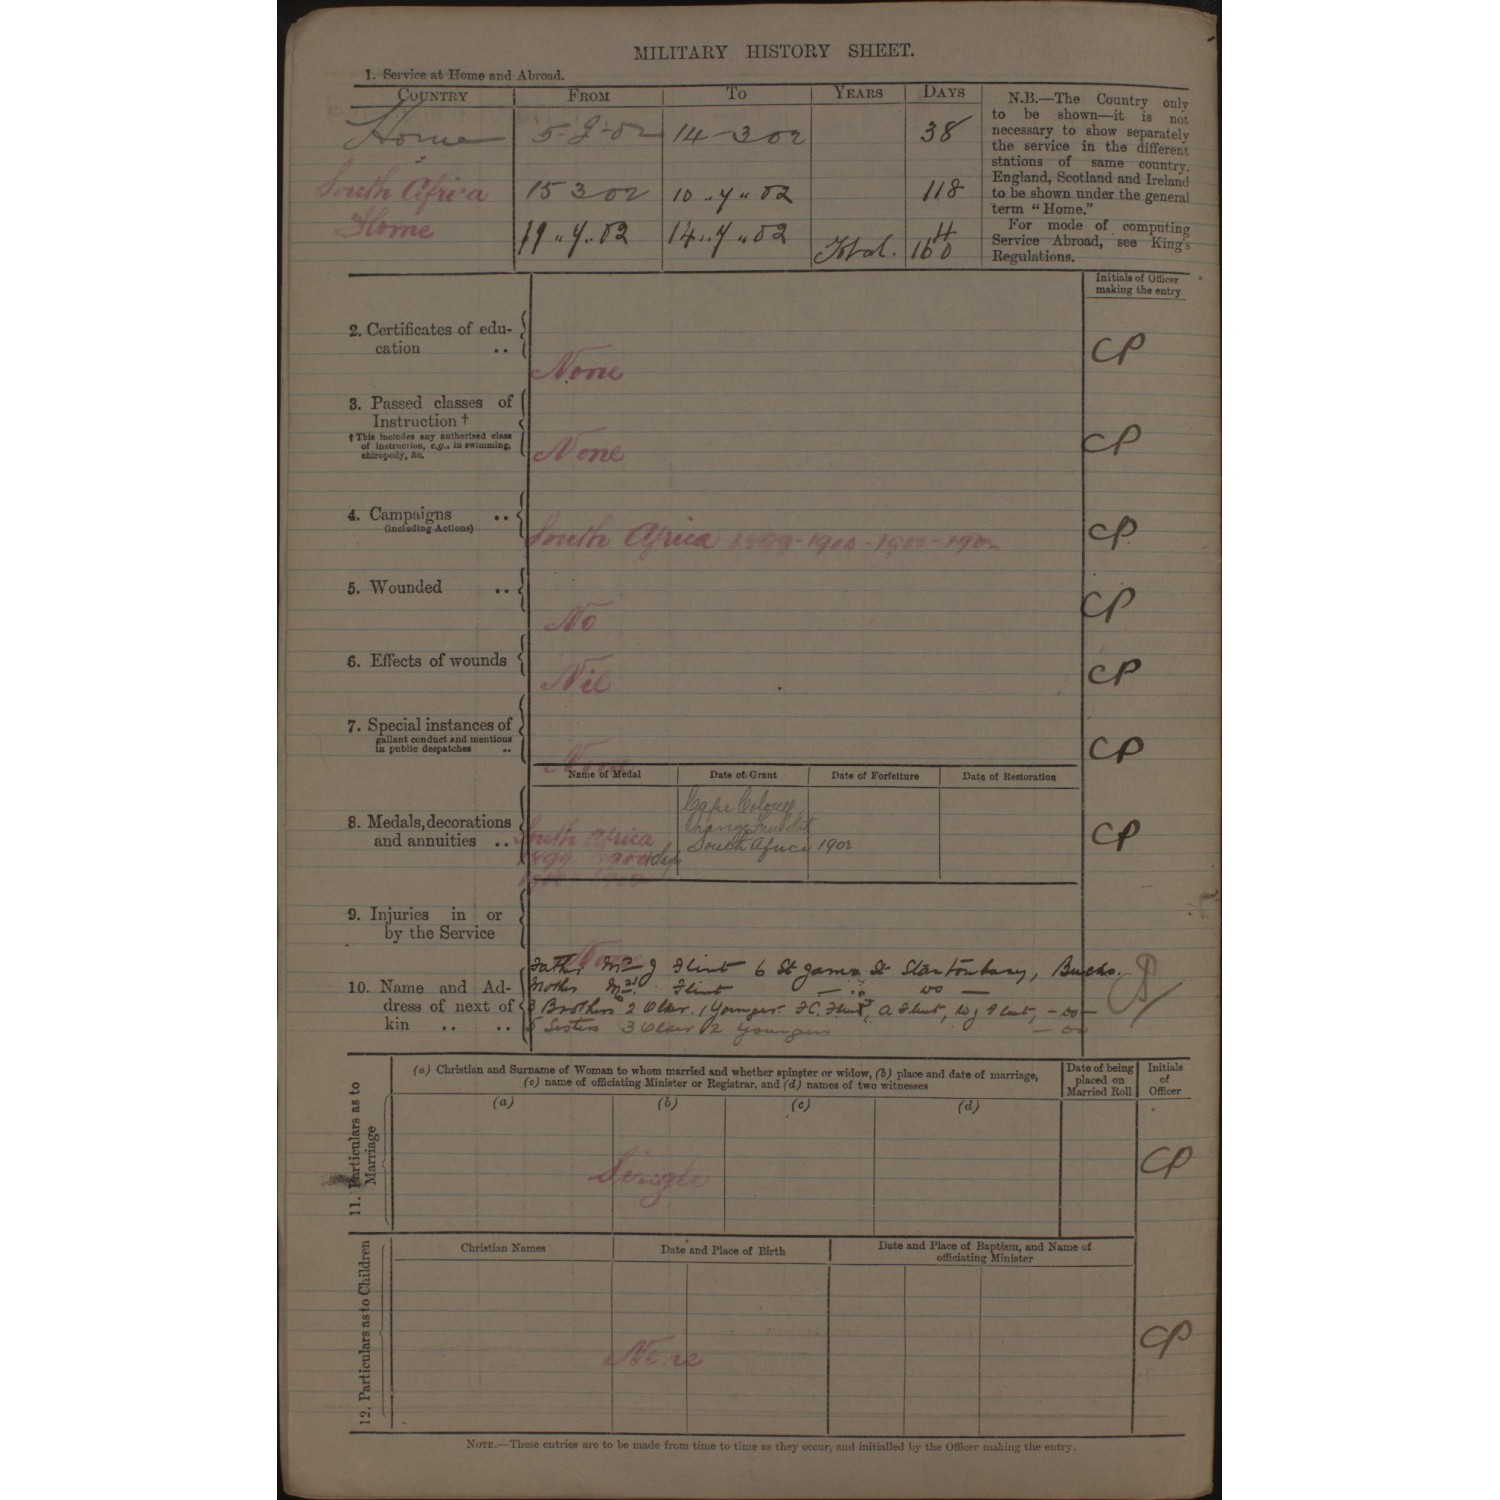 MILITARY HISTORY SHEET.
1. Service at Home and Abroad.
COUNTRY FROM TO YEARS DAYS
Home 5-2-02 14-3 02 38
South Africa 15 3 02 10 " 7 " 02 118
Home 11 " 7 " 02 14 " 7 " 02 4
Total. 160
N.B.—The Country only
to be shown—it is not
necessary to show separately
the service in the different
stations of same country.
England, Scotland and Ireland
to be shown under the general
term "Home."
For mode of computing
Service Abroad, see King's
Regulations.
Initials of Officer
making the entry
2. Certificates of edu-
cation ..
None
CP
3. Passed classes of
Instruction †
† This includes any authorised class
of instruction, e.g., in swimming,
chiropody, &c.
None
CP
4. Campaigns ..
(including Actions)
South Africa 1899-1900-1900-1902
CP
5. Wounded ..
No
CP
6. Effects of wounds
Nil
CP
7. Special instances of
gallant conduct and mentions
in public despatches ..
None
CP
Name of Medal Date of Grant Date of Forfeiture Date of Restoration
8. Medals, decorations
and annuities ..
South Africa
1899 1900 Clasp
Cape Colony
Orange Free State
South Africa 1902
CP
9. Injuries in or
by the Service
None
10. Name and Ad-
dress of next of
kin .. ..
Father Mr J Flint 6 St James St Stantonbury, Bucks.
Mother Mrs. Flint — " do —
3 Brothers 2 Older. 1 Younger. F.C. Flint, A Flint, W J Flint, - do -
5 Sisters 3 Older 2 Younger — do
11. Particulars as to
Marriage
(a) Christian and Surname of Woman to whom married and whether spinster or widow, (b) place and date of marriage,
(c) name of officiating Minister or Registrar, and (d) names of two witnesses
Date of being
placed on
Married Roll
Initials
of
Officer
(a) (b) (c) (d)
Single
CP
12. Particulars as to Children
Christian Names Date and Place of Birth Date and Place of Baptism, and Name of
officiating Minister
None
CP
NOTE.—These entries are to be made from time to time as they occur, and initialled by the Officer making the entry.